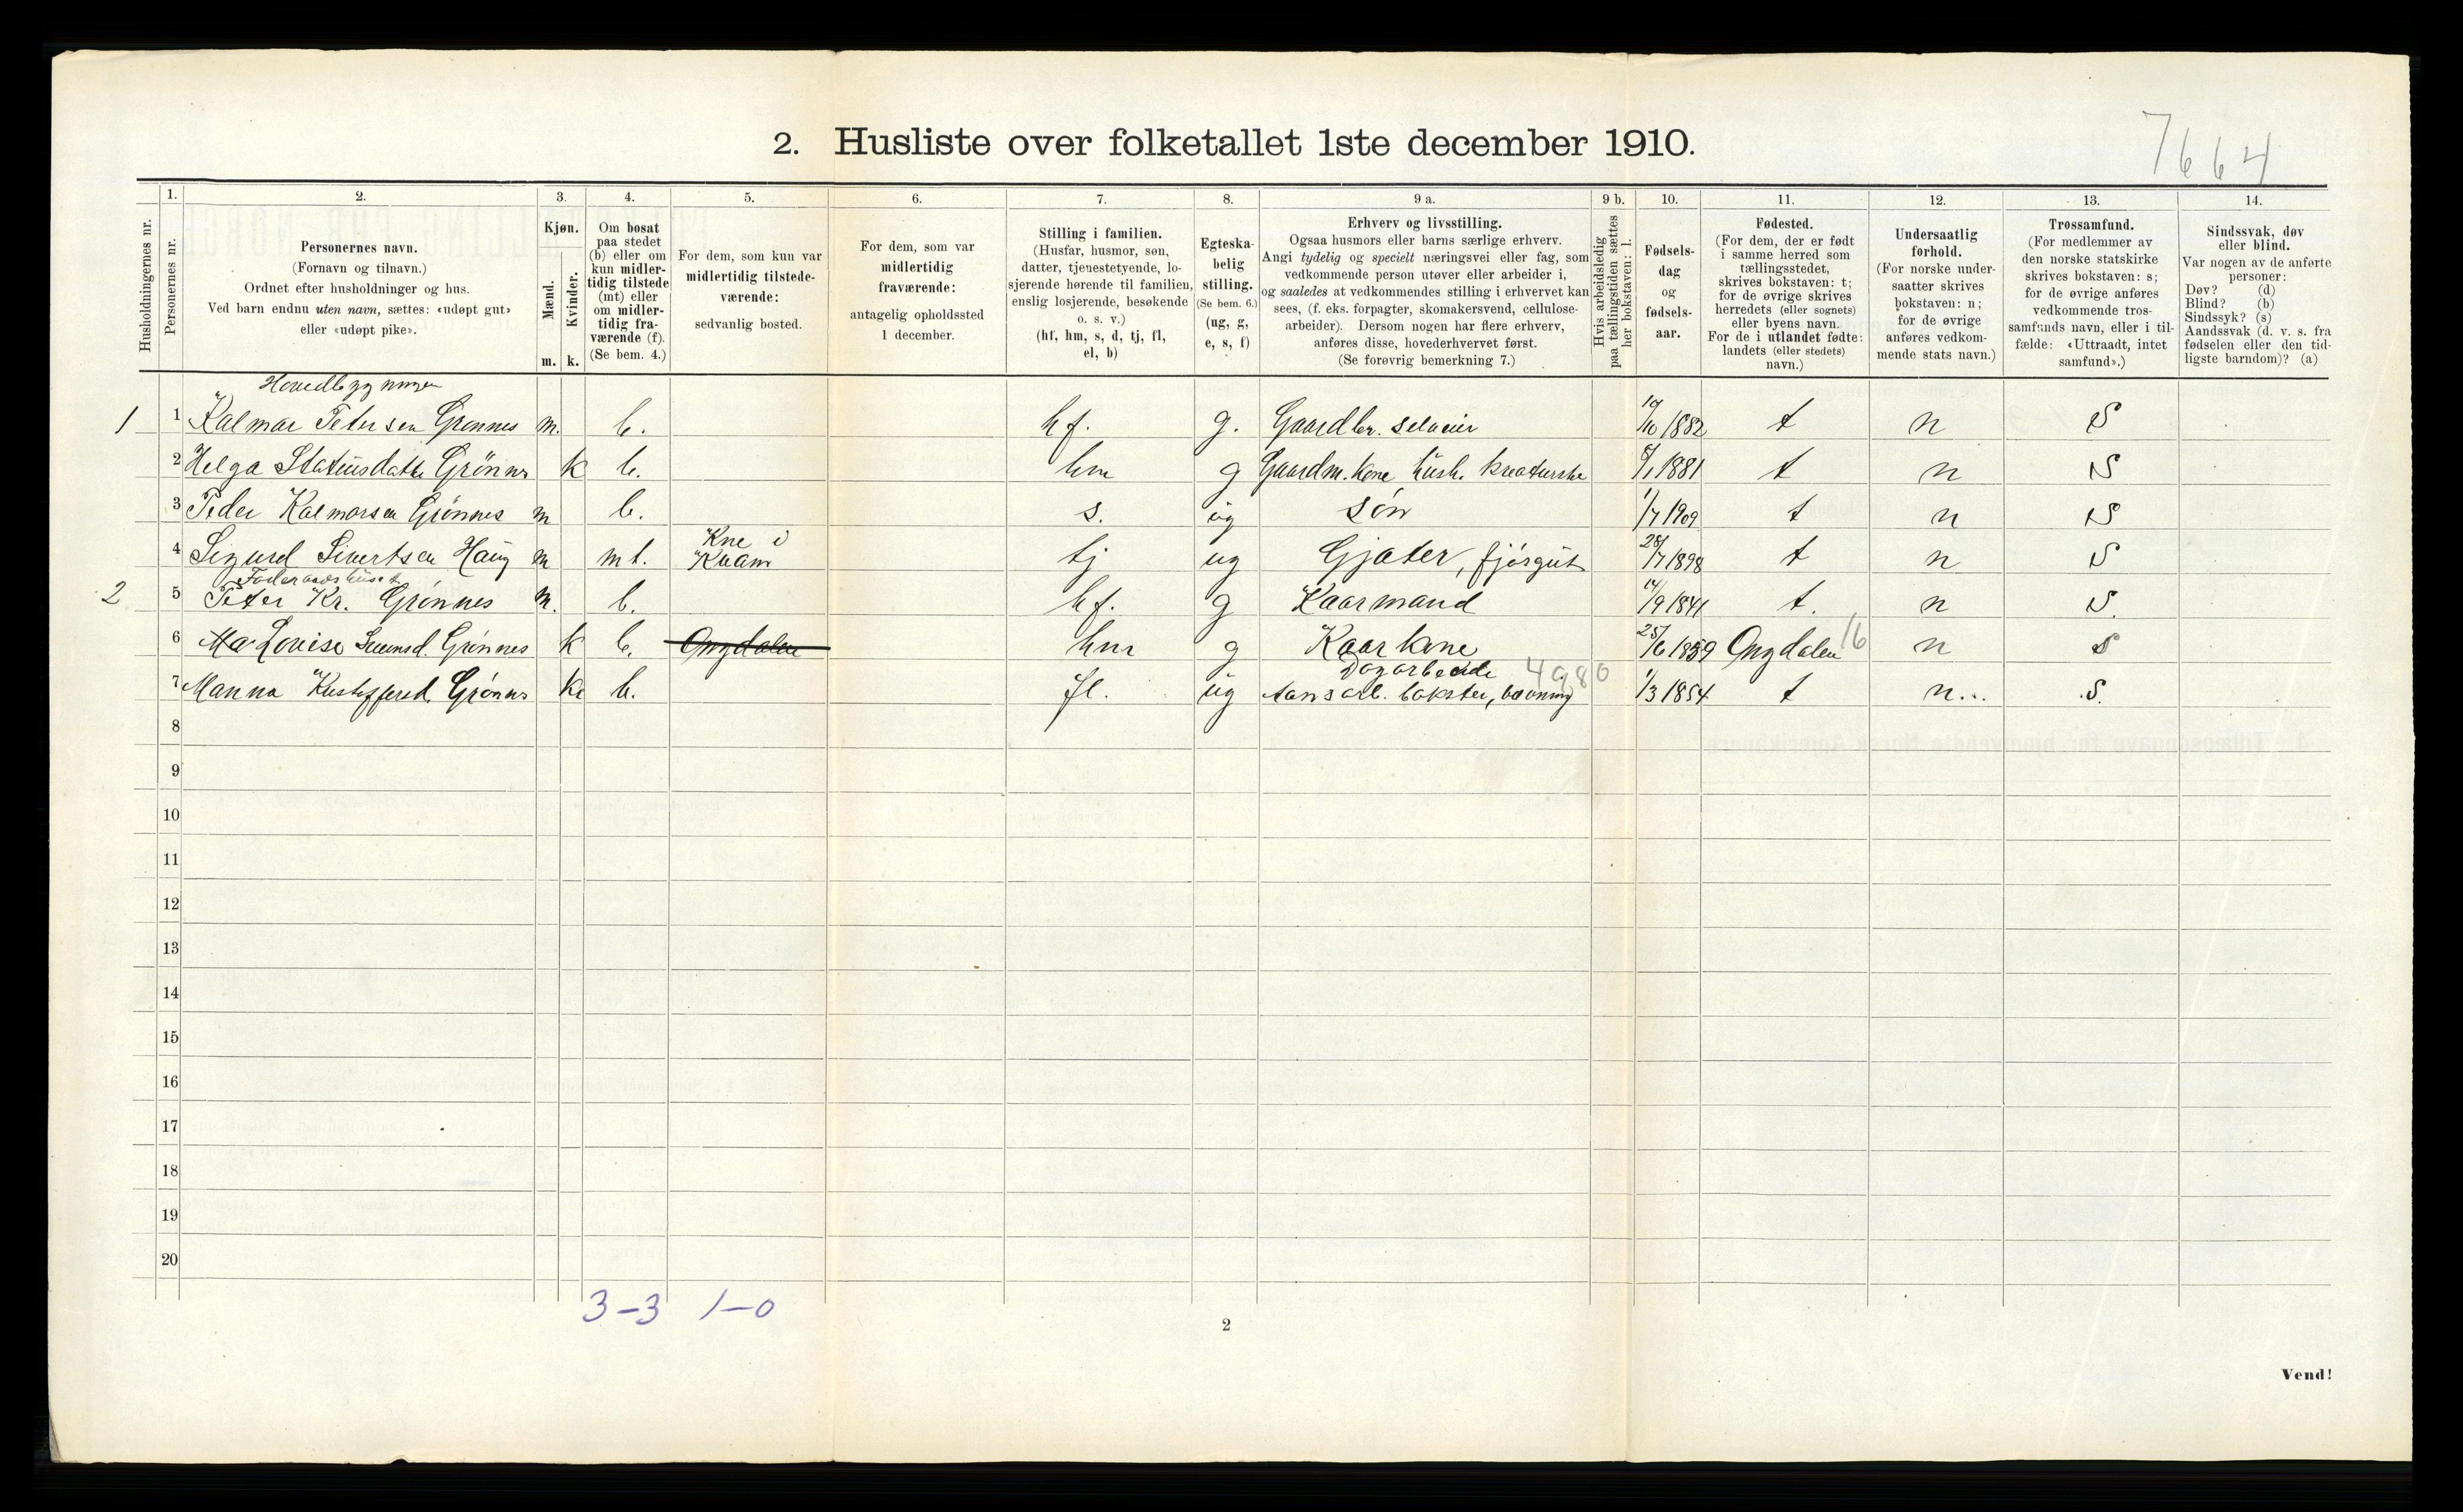 7664
2. Husliste over folketallet 1ste december 1910.
Husholdningernes nr.
1. Personernes nr.
2. Personernes navn.
(Fornavn og tilnavn.)
Ordnet efter husholdninger og hus.
Ved barn endnu uten navn, sættes: «udøpt gut»
eller «udøpt pike».
3. Kjøn.
Mænd. m.
Kvinder. k.
4. Om bosat
paa stedet
(b) eller om
kun midler-
tidig tilstede
(mt) eller
om midler-
tidig fra-
værende (f).
(Se bem. 4.)
5. For dem, som kun var
midlertidig tilstede-
værende:
sedvanlig bosted.
6. For dem, som var
midlertidig
fraværende:
antagelig opholdssted
1 december.
7. Stilling i familien.
(Husfar, husmor, søn,
datter, tjenestetyende, lo-
sjerende hørende til familien,
enslig losjerende, besøkende
o. s. v.)
(hf, hm, s, d, tj, fl,
el, b)
8. Egteska-
belig
stilling.
(Se bem. 6.)
(ug, g,
e, s, f)
9 a. Erhverv og livsstilling.
Ogsaa husmors eller barns særlige erhverv.
Angi tydelig og specielt næringsvei eller fag, som
vedkommende person utøver eller arbeider i,
og saaledes at vedkommendes stilling i erhvervet kan
sees, (f. eks. forpagter, skomakersvend, cellulose-
arbeider). Dersom nogen har flere erhverv,
anføres disse, hovederhvervet først.
(Se forøvrig bemerkning 7.)
9 b. Hvis arbeidsledig
paa tællingstiden sættes
her bokstaven: l.
10. Fødsels-
dag
og
fødsels-
aar.
11. Fødested.
(For dem, der er født
i samme herred som
tællingsstedet,
skrives bokstaven: t;
for de øvrige skrives
herredets (eller sognets)
eller byens navn.
For de i utlandet fødte:
landets (eller stedets)
navn.)
12. Undersaatlig
forhold.
(For norske under-
saatter skrives
bokstaven: n;
for de øvrige
anføres vedkom-
mende stats navn.)
13. Trossamfund.
(For medlemmer av
den norske statskirke
skrives bokstaven: s;
for de øvrige anføres
vedkommende tros-
samfunds navn, eller i til-
fælde: «Uttraadt, intet
samfund».)
14. Sindssvak, døv
eller blind.
Var nogen av de anførte
personer:
Døv? (d)
Blind? (b)
Sindssyk? (s)
Aandssvak (d. v. s. fra
fødselen eller den tid-
ligste barndom)? (a)
Hovedbygningen
1 1 Kalmar Petersen Grønnes m. b. hf. g. Gaardbr. selveier 19/10 1882 t n S
2 Helga Grønnes k b. hm g Gaardm. kone 8/1 1881 t n S
3 Peder Kalmarsen Grønnes m b. s. ug søn 1/7 1909 t n S
Kne i
4 Sigurd Sivertsen Haug m mt. Kvam tj ug Gjæter, fjøsgut 28/7 1898 t n S
Føderaadshuset
2 5 Peter Kr. Grønnes m. b. hf. g Kaarmand 14/9 1841 t. n S.
6 Ma Lovise Grønnes k b. Ongdalen hm g Kaarkone 25/6 1859 Ongdalen 16 n S
Dagarbeide 4980
7 Manna Grønnes k b. fl. ug bakster, 1/3 1854 t n... S.
8
9
10
11
12
13
14
15
16
17
18
19
20
3-3 1-0
2
Vend!